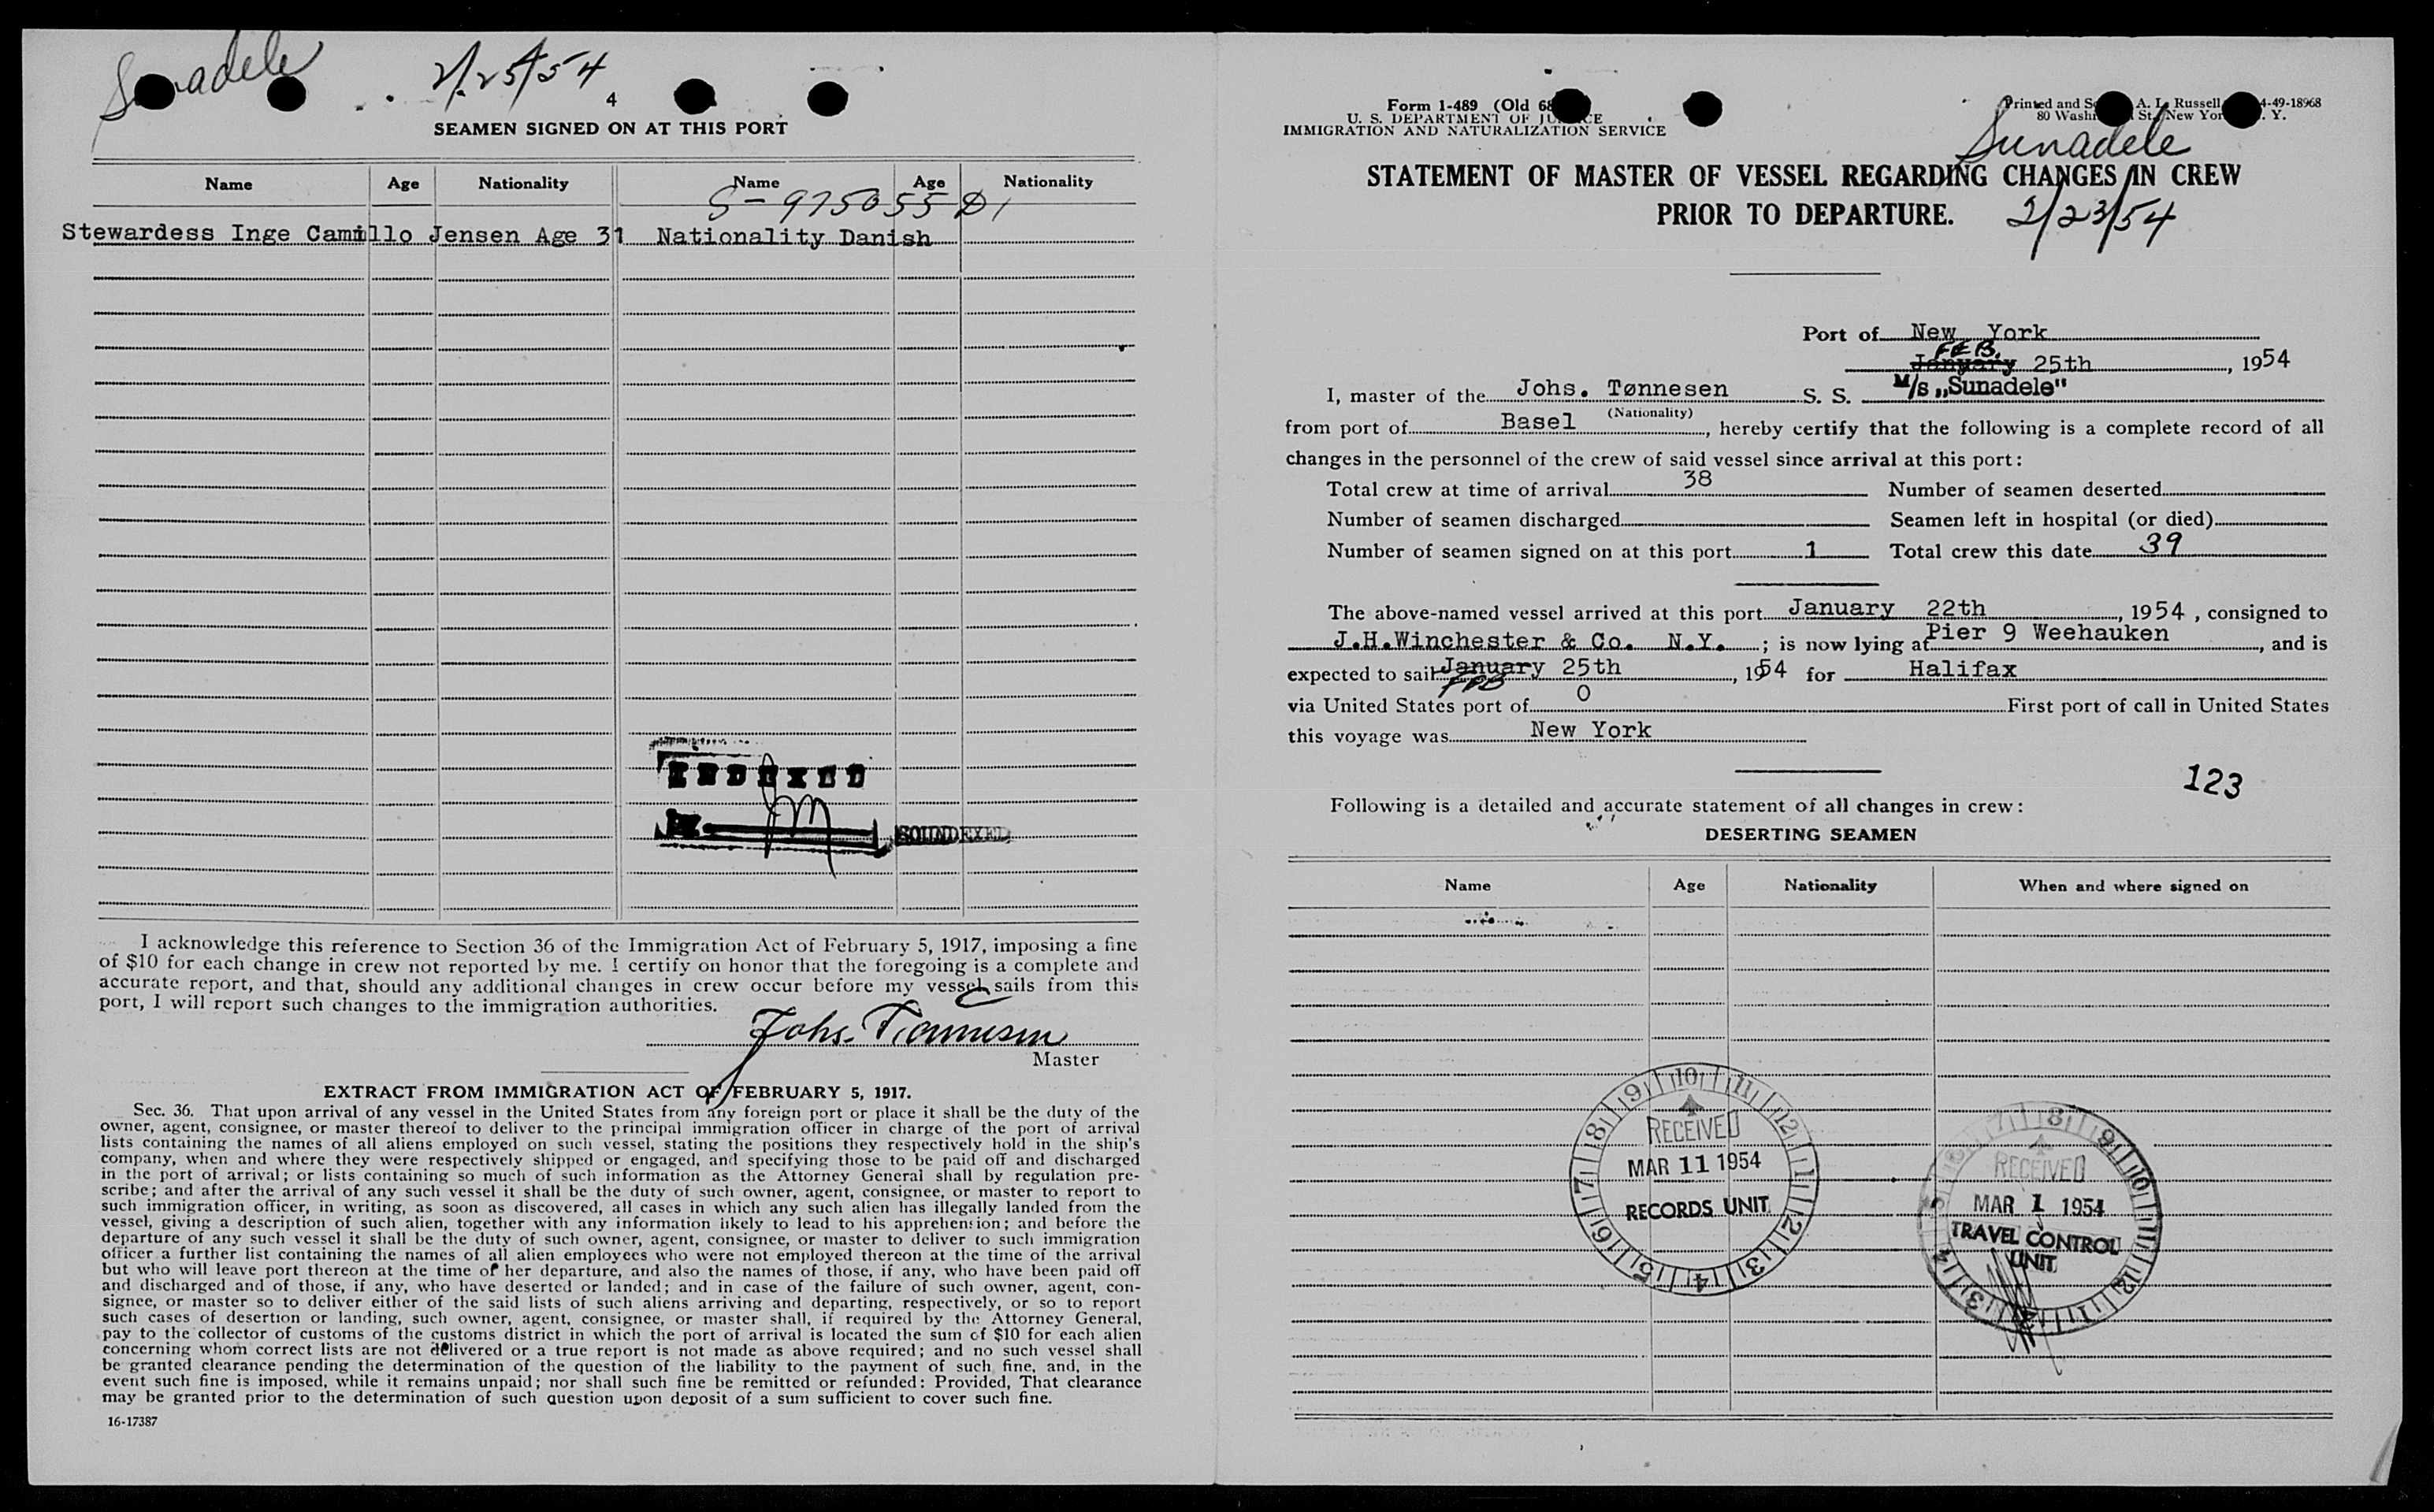 Sunadele 2/25/54
4
SEAMEN SIGNED ON AT THIS PORT
Name Age Nationality Name Age Nationality
S-975055 D1
Stewardess Inge Camillo Jensen Age 31 Nationality Danish
INDEXED
SOUNDEXED
I acknowledge this reference to Section 36 of the Immigration Act of February 5, 1917, imposing a fine
of $10 for each change in crew not reported by me. I certify on honor that the foregoing is a complete and
accurate report, and that, should any additional changes in crew occur before my vessel sails from this
port, I will report such changes to the immigration authorities.
Johs. Tønnesen
Master
EXTRACT FROM IMMIGRATION ACT OF FEBRUARY 5, 1917.
Sec. 36. That upon arrival of any vessel in the United States from any foreign port or place it shall be the duty of the
owner, agent, consignee, or master thereof to deliver to the principal immigration officer in charge of the port of arrival
lists containing the names of all aliens employed on such vessel, stating the positions they respectively hold in the ship's
company, when and where they were respectively shipped or engaged, and specifying those to be paid off and discharged
in the port of arrival; or lists containing so much of such information as the Attorney General shall by regulation pre-
scribe; and after the arrival of any such vessel it shall be the duty of such owner, agent, consignee, or master to report to
such immigration officer, in writing, as soon as discovered, all cases in which any such alien has illegally landed from the
vessel, giving a description of such alien, together with any information likely to lead to his apprehension; and before the
departure of any such vessel it shall be the duty of such owner, agent, consignee, or master to deliver to such immigration
officer a further list containing the names of all alien employees who were not employed thereon at the time of the arrival
but who will leave port thereon at the time of her departure, and also the names of those, if any, who have been paid off
and discharged and of those, if any, who have deserted or landed; and in case of the failure of such owner, agent, con-
signee, or master so to deliver either of the said lists of such aliens arriving and departing, respectively, or so to report
such cases of desertion or landing, such owner, agent, consignee, or master shall, if required by the Attorney General,
pay to the collector of customs of the customs district in which the port of arrival is located the sum of $10 for each alien
concerning whom correct lists are not delivered or a true report is not made as above required; and no such vessel shall
be granted clearance pending the determination of the question of the liability to the payment of such fine, and, in the
event such fine is imposed, while it remains unpaid; nor shall such fine be remitted or refunded: Provided, That clearance
may be granted prior to the determination of such question upon deposit of a sum sufficient to cover such fine.
16-17387
Form 1-489 (Old 68
U. S. DEPARTMENT OF JUSTICE
IMMIGRATION AND NATURALIZATION SERVICE
Printed and S A. L. Russell 4-49-18968
80 Wash St., New Yor . Y.
Sunadele
STATEMENT OF MASTER OF VESSEL REGARDING CHANGES IN CREW
PRIOR TO DEPARTURE.
2/23/54
Port of New York
FEB.
January 25th, 1954
I, master of the Johs. Tønnesen S. S. M/S „Sunadele"
(Nationality)
from port of Basel, hereby certify that the following is a complete record of all
changes in the personnel of the crew of said vessel since arrival at this port:
Total crew at time of arrival 38 Number of seamen deserted
Number of seamen discharged Seamen left in hospital (or died)
Number of seamen signed on at this port 1 Total crew this date 39
The above-named vessel arrived at this port January 22th, 1954, consigned to
J.H.Winchester & Co. N.Y.; is now lying at Pier 9 Weehauken, and is
expected to sail January 25th, 1954 for Halifax
FEB
via United States port of 0 First port of call in United States
this voyage was New York
123
Following is a detailed and accurate statement of all changes in crew:
DESERTING SEAMEN
Name Age Nationality When and where signed on
9 10 11 12 1 2 3 4 5 6 7 8
RECEIVED
MAR 11 1954
RECORDS UNIT
7 8 9 10 11 12 1 2 3 4 5 6
RECEIVED
MAR 1 1954
TRAVEL CONTROL
UNIT